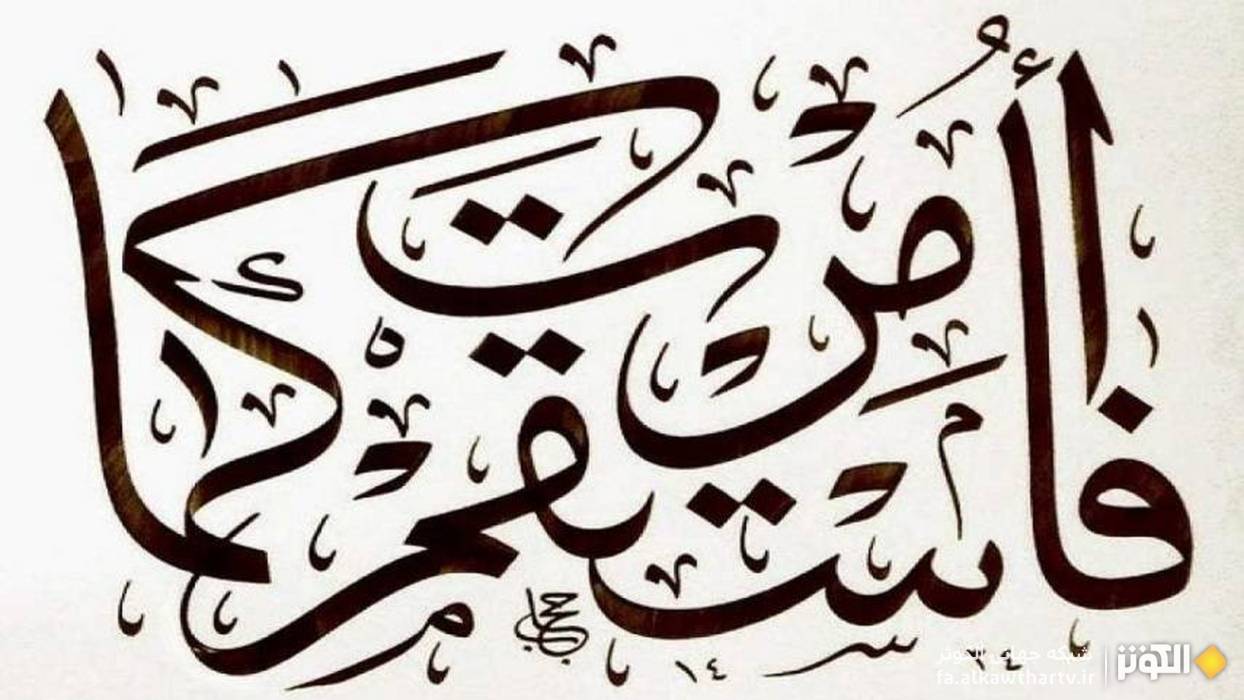 فاستقم كما أمرت
الكوثر
شبکه جهانی الکوثر
fa.alkawthartv.ir